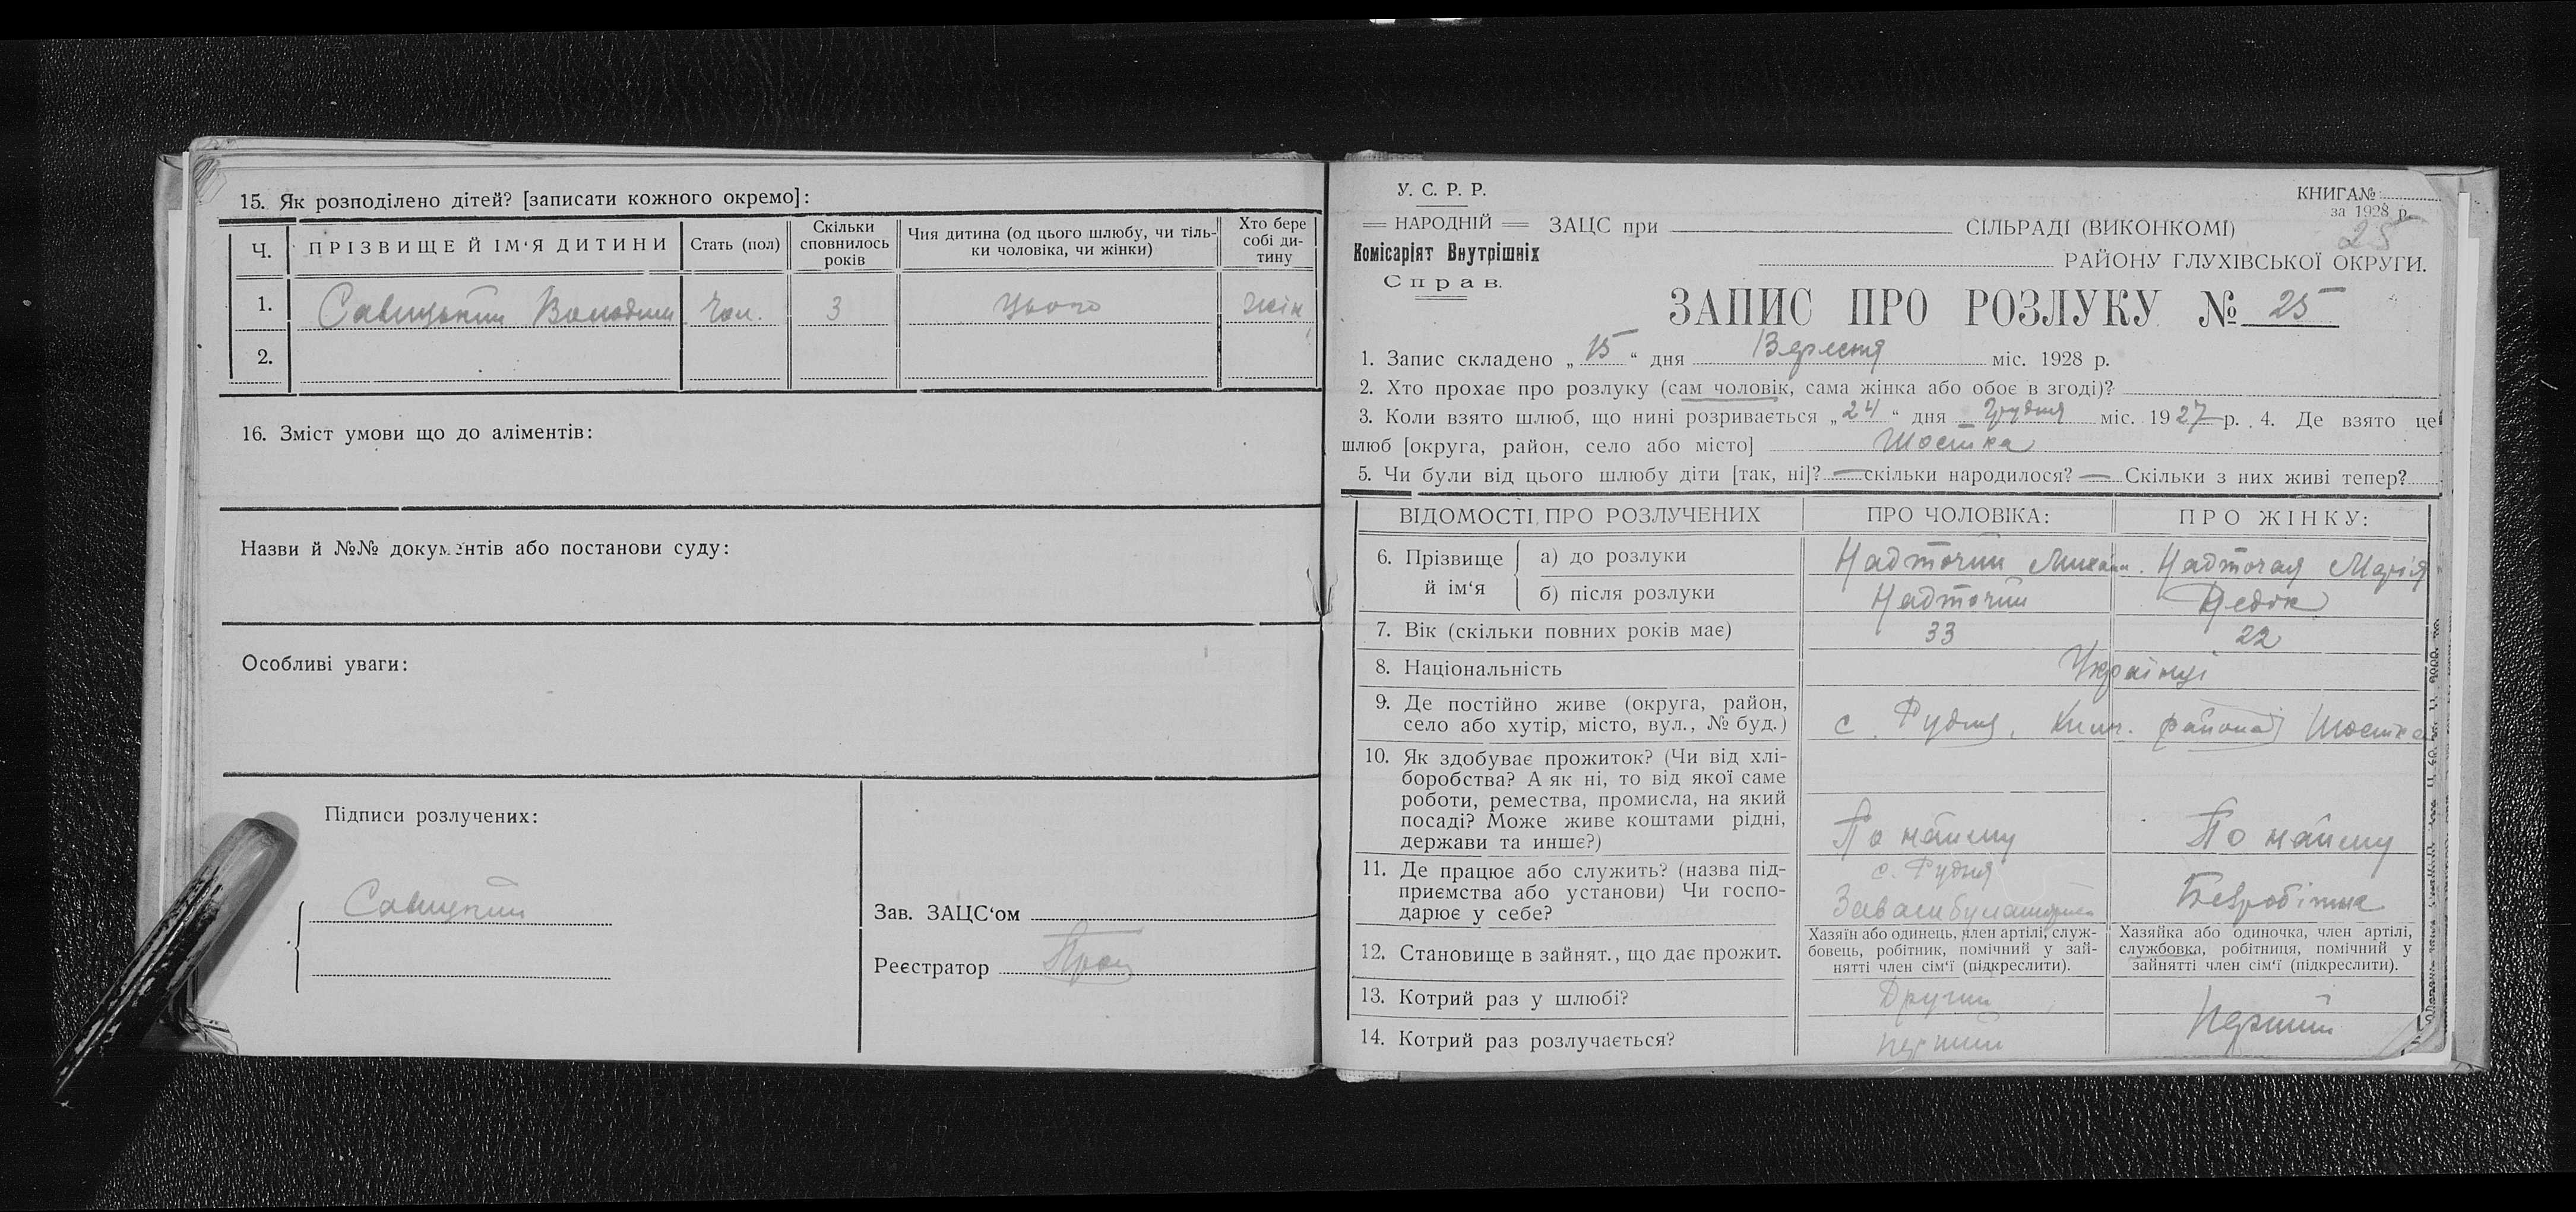 15. Як розподілено дітей? [записати кожного окремо]:
Ч. ПРІЗВИЩЕ Й ІМ‘Я ДИТИНИ Стать (пол) Скільки сповнилось років Чия дитина (од цього шлюбу, чи тіль- ки чоловіка, чи жінки) Хто бере собі ди- тину
1. Савицький Володим чол. 3 цього жін
2.
16. Зміст умови що до аліментів:
Назви й №№ документів або постанови суду:
Особливі уваги:
Підписи розлучених:
Савицкий
Зав. ЗАЦС‘ом
Реєстратор
У. С. Р. Р.
НАРОДНІЙ
Комісаріят Внутрішніх
Справ.
КНИГА№
за 1928 р.
25
ЗАЦС при СІЛЬРАДІ (ВИКОНКОМІ)
РАЙОНУ ГЛУХІВСЬКОЇ ОКРУГИ.
ЗАПИС ПРО РОЗЛУКУ № 25
1. Запис складено „ 15 “ дня Вересня міс. 1928 р.
2. Хто прохає про розлуку (сам чоловік, сама жінка або обоє в згоді)?
3. Коли взято шлюб, що нині розривається „ 24 “ дня Грудня міс. 1927 р. 4. Де взято це
шлюб [округа, район, село або місто] Шостка
5. Чи були від цього шлюбу діти [так, ні]? — скільки народилося? — Скільки з них живі тепер?
ВІДОМОСТІ ПРО РОЗЛУЧЕНИХ ПРО ЧОЛОВІКА: ПРО ЖІНКУ:
6. Прізвище й ім‘я а) до розлуки Надточий Михайл. Надточая Марія
б) після розлуки Надточий
7. Вік (скільки повних років має) 33 22
8. Національність Українці
9. Де постійно живе (округа, район,
село або хутір, місто, вул., № буд.) с. Рудня, района Шостка
10. Як здобуває прожиток? (Чи від хлі-
боробства? А як ні, то від якої саме
роботи, ремества, промисла, на який
посаді? Може живе коштами рідні,
держави та инше?) По найму По найму
11. Де працює або служить? (назва під-
приємства або установи) Чи госпо-
дарює у себе? с. Рудня Безробітна
12. Становище в зайнят., що дає прожит.
Хазяїн або одинець, член артілі, служ-
бовець, робітник, помічний у зай-
нятті член сім‘ї (підкреслити).
Хазяйка або одиночка, член артілі,
службовка, робітниця, помічний у
зайнятті член сім‘ї (підкреслити).
13. Котрий раз у шлюбі? Другий Перший
14. Котрий раз розлучається? перший